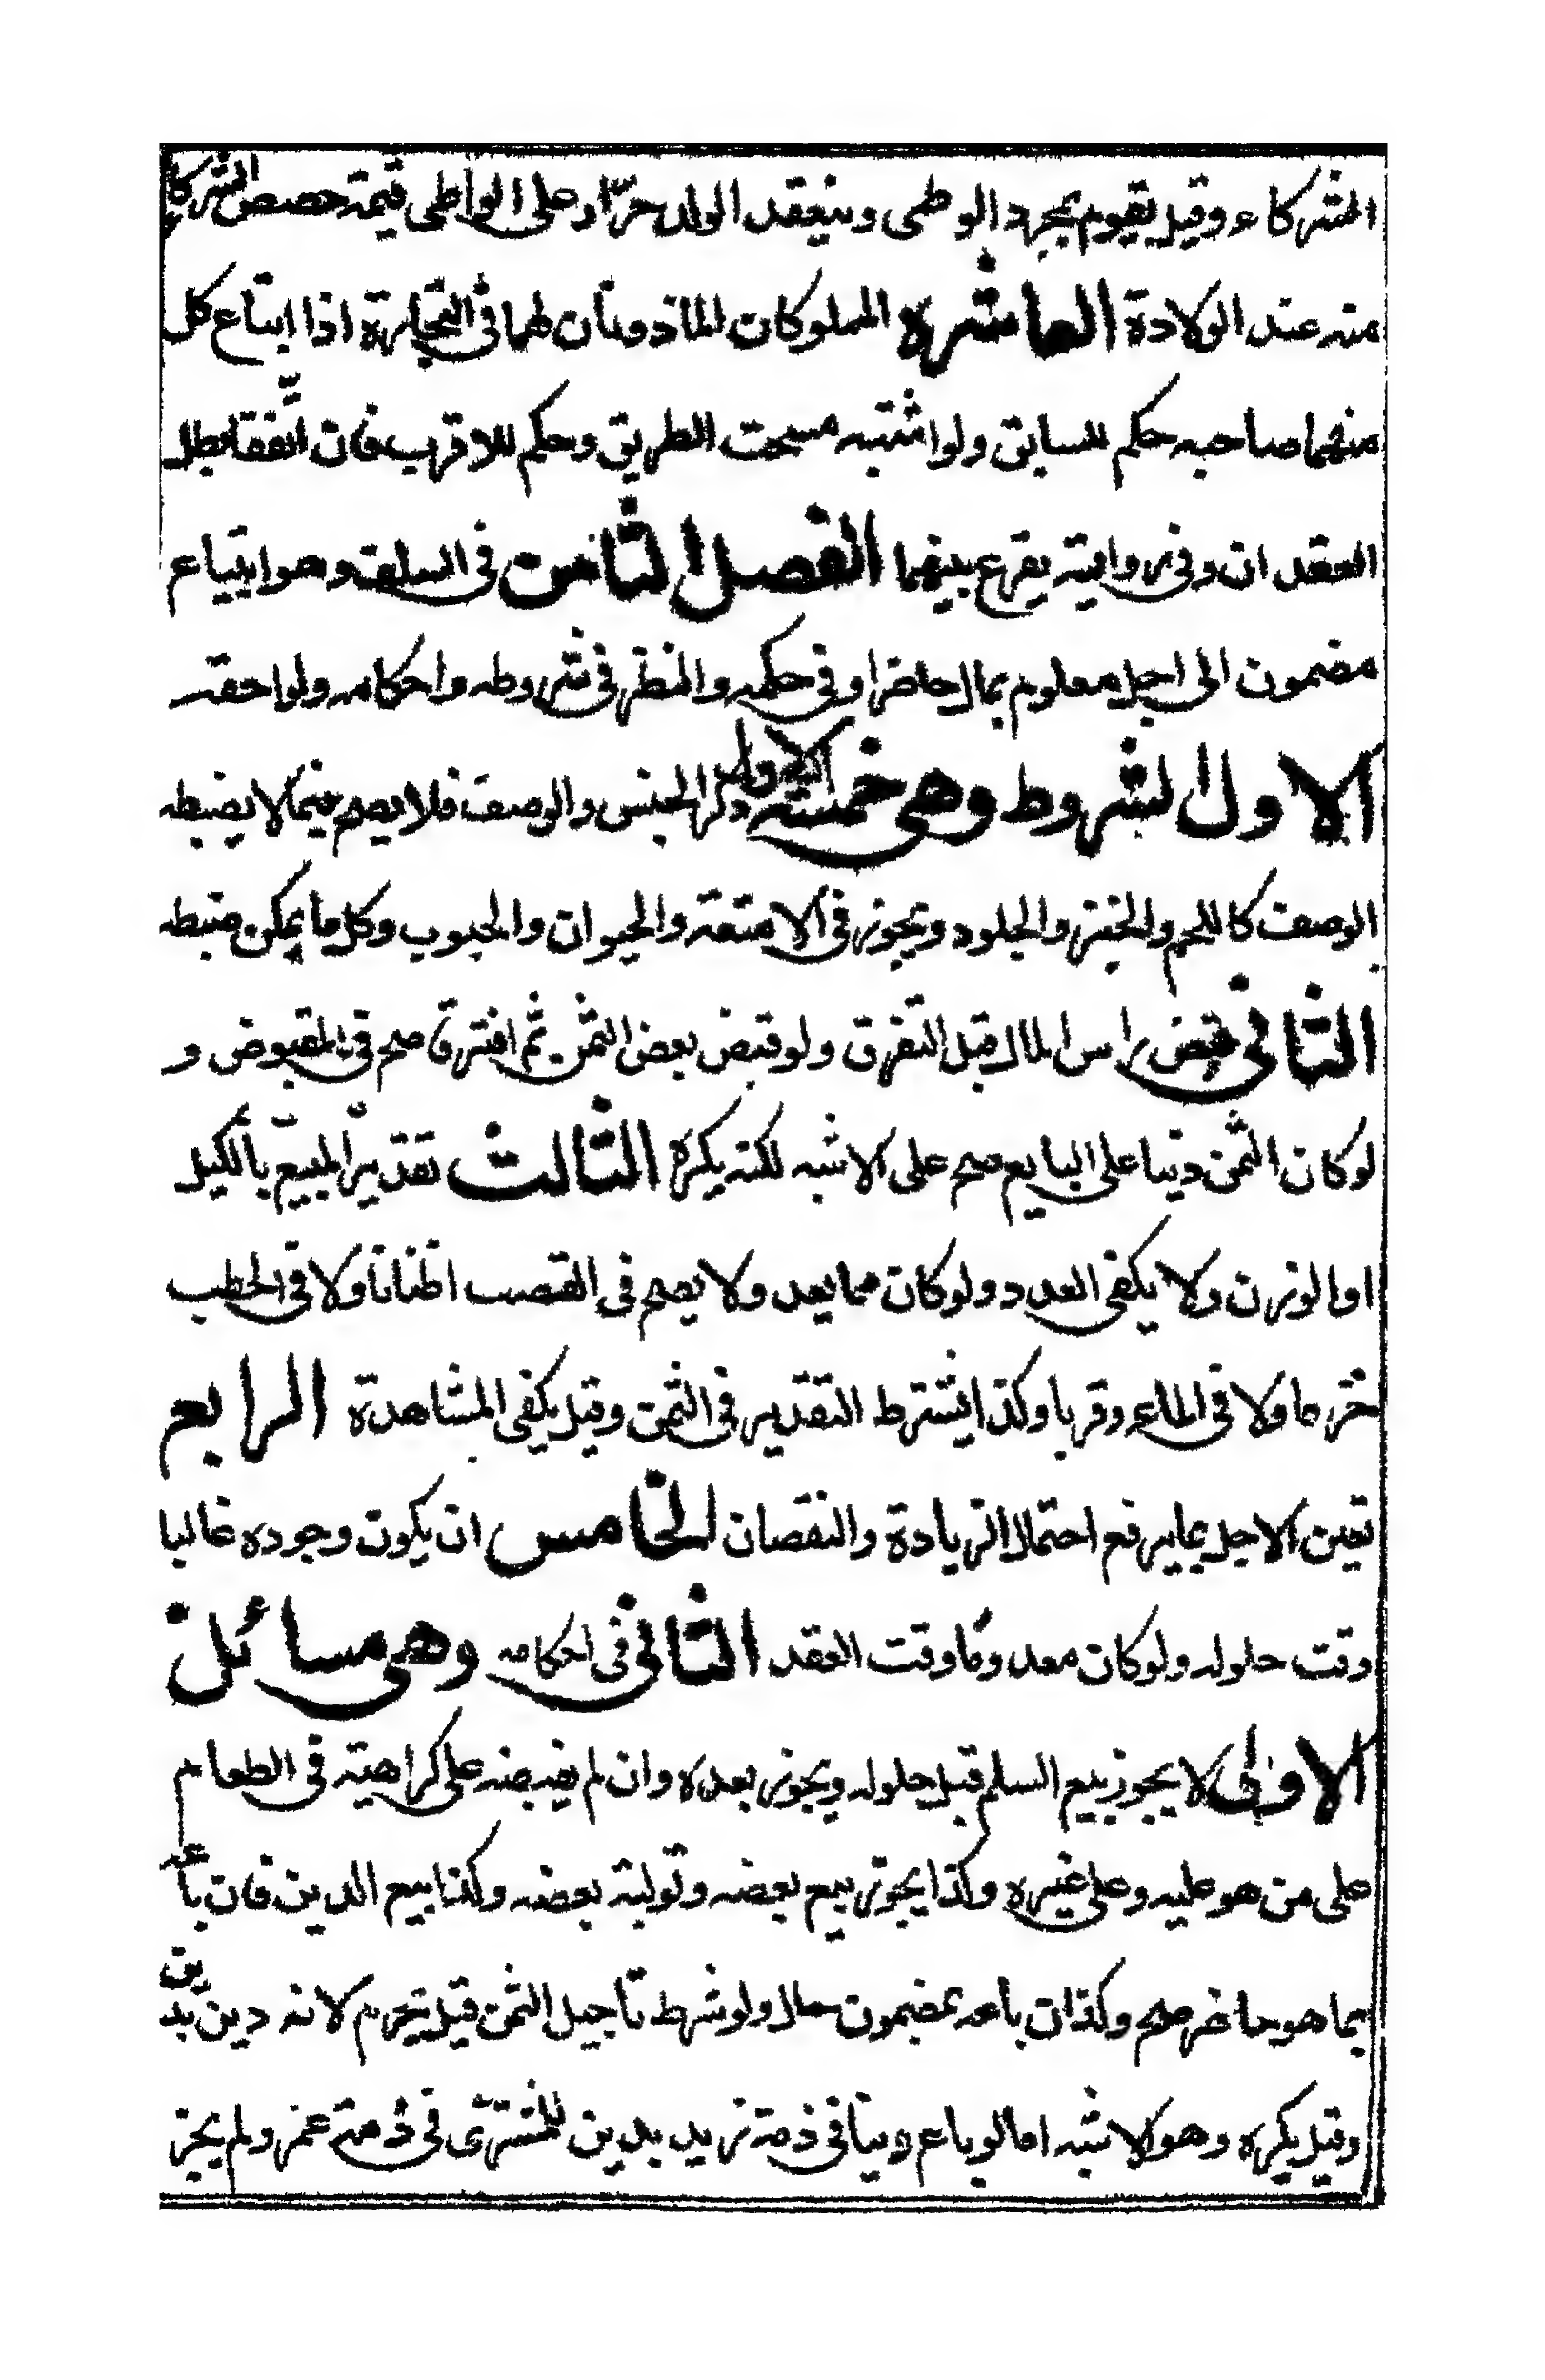 الشركاء وقيل يقوم بمجرد الوطى وينعقد الولد حرّا وعلى الواطى قيمة حصص الشركاء
منه عند الولادة العاشرة المملوكان الماذونان لهما فى التجارة اذا ابتاع كل
منهما صاحبه حكم للسابق ولو اشتبه مسحت الطريق وحكم للاقرب فان اتّفقا بطل
العقدان وفى رواية يقرع بينهما الفصل الثامن فى السلف وهو ابتياع
مضمون الى اجل معلوم بمال حاضر او فى حكمه والنظر فى شروطه واحكامه ولواحقه
الاول الشروط وهى خمسة الاول ذكر الجنس والوصف فلا يصح فيما لا يضبطه
الوصف كاللحم والخبز والجلود ويجوز فى الامتعة والحيوان والحبوب وكل ما يمكن ضبطه
الثانى قبض راس المال قبل التفرق ولو قبض بعض الثمن ثم افترقا صح فى المقبوض و
لو كان الثمن دينا على البايع صح على الاشبه لكنه يكره الثالث تقدير المبيع بالكيل
او الوزن ولا يكفى العدد ولو كان مما يعد ولا يصح فى القصب اطنانا ولا فى الحطب
حزما ولا فى الماء قربا وكذا يشترط التقدير فى الثمن وقيل يكفى المشاهدة الرابع
تعين الاجل بما يرفع احتمال الزيادة والنقصان الخامس ان يكون وجوده غالبا
وقت حلوله ولو كان معدوما وقت العقد الثانى فى احكامه وهى مسائل
الاولى لا يجوز بيع السلم قبل حلوله ويجوز بعده وان لم يقبضه على كراهية فى الطعام
على من هو عليه وعلى غيره وكذا يجوز بيع بعضه وتولية بعضه وكذا بيع الدين فان باعه
بما هو حاضر صح وكذا ان باعه بمضمون حال ولو شرط تأجيل الثمن قيل يحرم لانه دين بدين
وقيل يكره وهو الاشبه اما لو باع دينا فى ذمة زيد بدين للمشترى فى ذمة عمر ولم يجز